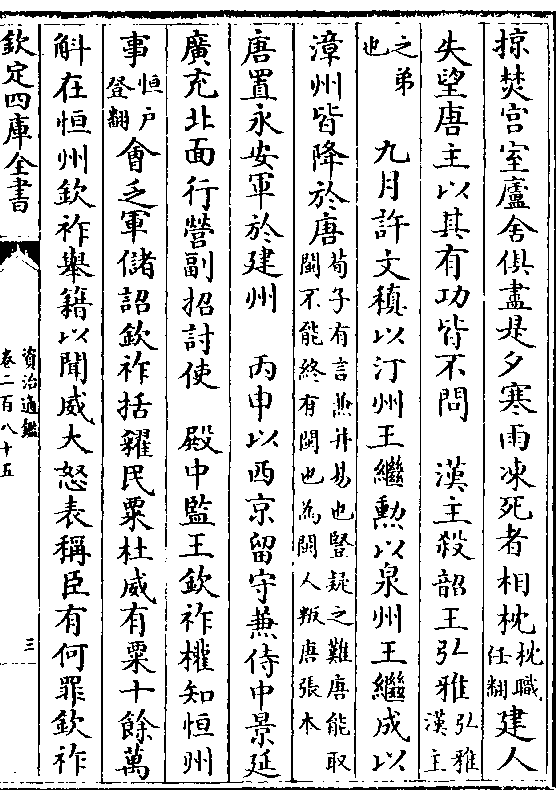 掠焚宫室廬舍俱盡是夕寒雨凍死者相枕枕職任翻建人
失望唐主以其有功皆不問　漢主殺韶王弘雅弘雅漢主
之弟也　九月許文稹以汀州王繼勲以泉州王繼成以
漳州皆降於唐荀子有言兼并易也堅凝之難唐能取閩不能終有閩也為閩人叛唐張本
唐置永安軍於建州　丙申以西京留守兼侍中景延
廣充北面行營副招討使　殿中監王欽祚權知恒州
事恒戶登翻會乏軍儲詔欽祚括糴民粟杜威有粟十餘萬
斛在恒州欽祚舉籍以聞威大怒表稱臣有何罪欽祚
欽定四庫全書
資治通鑑
卷二百八十五
三